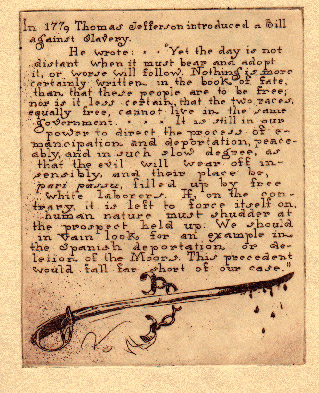 In 1779 Thomas Jefferson introduced a Bill
against Slavery.
He wrote: . . "Yet the day is not
distant when it must bear and adopt
it, or worse will follow. Nothing is more
certainly written in the book of fate,
than that these people are to be free;
nor is it less certain, that the two races,
equally free, cannot live in the same
government. . . . It is still in our
power to direct the process of e-
mancipation and deportation, peace-
ably, and in such slow degree, as
that the evil will wear off in-
sensibly, and their place be,
pari passu, filled up by free
white laborers. If, on the con-
trary, it is left to force itself on,
human nature must shudder at
the prospect held up. We should
in vain look for an example in
the Spanish deportation or de-
letion of the Moors. This precedent
would fall far short of our case."